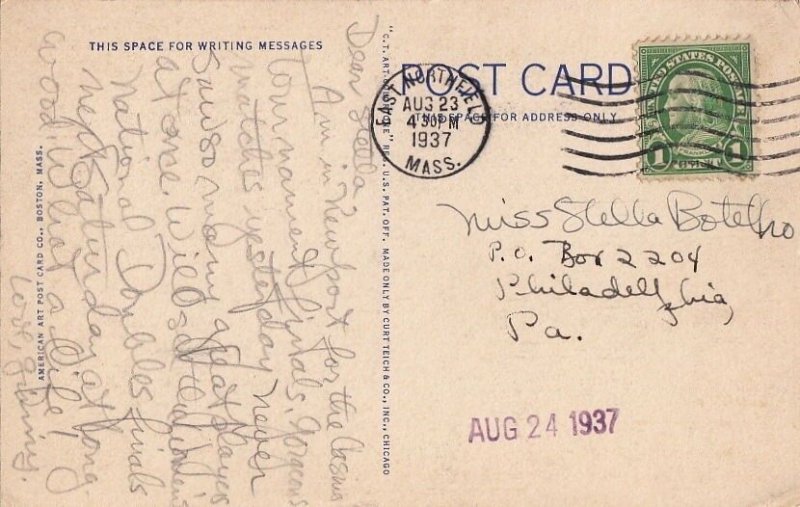 THIS SPACE FOR WRITING MESSAGES
Dear Stella
Am in Newport for the Casino
tournament finals. Gorgeous
matches yesterday never
saw so many great players
at one. Will see
National Doubles finals
next Saturday at Long
wood. What a life!
Love, Ginny.
AMERICAN ART POST CARD CO., BOSTON, MASS.
"C.T. ART-COLORTONE" REG. U.S. PAT. OFF. MADE ONLY BY CURT TEICH & CO., INC., CHICAGO
POST CARD
THIS SPACE FOR ADDRESS ONLY
EAST NORTHFIELD
AUG 23
4 30 PM
1937
MASS.
UNITED STATES POSTAGE
1 1
Miss Stella Botelho
P.O. Box 2204
Philadelphia,
Pa.
AUG 24 1937